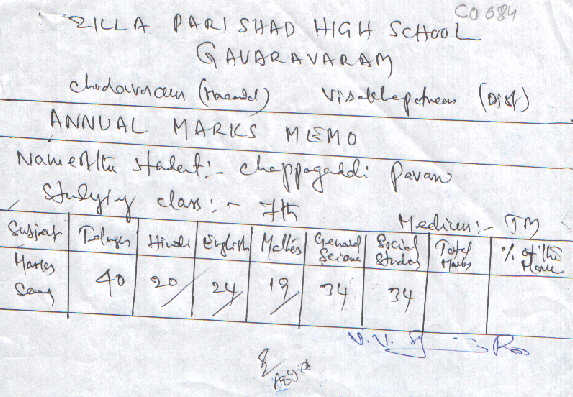 CO 684
ZILLA PARISHAD HIGH SCHOOL
GAVARAVARAM
Chodavaram (Mandal) Visakhapatnam (Dist)
ANNUAL MARKS MEMO
Name of the student:- Cheppagaddi Pavan
Studying class:- 7th
Medium:- TM
Subject Telugu Hindi English Maths General Science Social Studies Total Marks % of the Marks
Marks 40 20 24 19 34 34